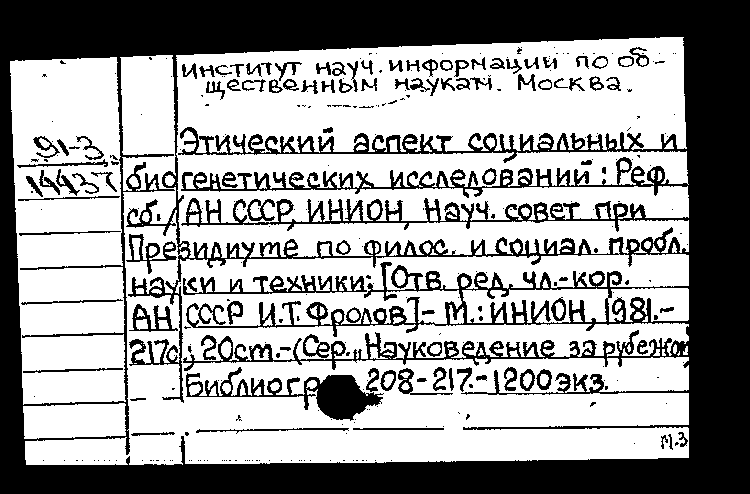 институт науч. информации по об-
щественным наукам. Москва.
91-3
14437
Этический аспект социальных и
биогенетических исследований: Реф.
сб. / АН СССР, ИНИОН, Науч. совет при
Президиуме по филос. и социал. пробл.
науки и техники; [Отв. ред. чл.-кор.
АН СССР И.Т. Фролов].- М.: ИНИОН, 1981.-
217с.; 20см.-(Сер. „Науковедение за рубежом
Библиогр 208-217.-1200 экз.
М.3